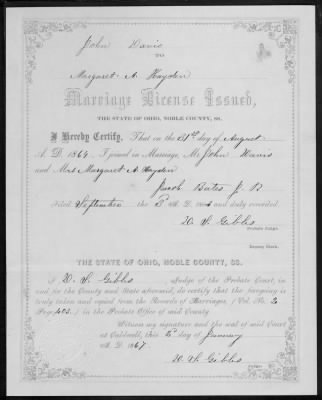 John Davis
TO
Margaret A. Hayden
Marriage License Issued,
THE STATE OF OHIO, NOBLE COUNTY, SS.
I Hereby Certify, That on the 31st day of August
A. D. 1864 I joined in Marriage, Mr John Davis
and Mrs Margaret A Hayden
Jacob Bates J. P.
Filed September the 3d A. D. 1864 and duly recorded.
W. S. Gibbs
Probate Judge.
Deputy Clerk.
THE STATE OF OHIO, NOBLE COUNTY, SS:
I W. S. Gibbs Judge of the Probate Court, in
and for the County and State aforesaid, do certify that the foregoing is
truly taken and copied from the Records of Marriages, (Vol. No. 2
Page 403.) in the Probate Office of said County
Witness my signature and the seal of said Court
at Caldwell, this day of January
A. D. 1867.
W. S. Gibbs